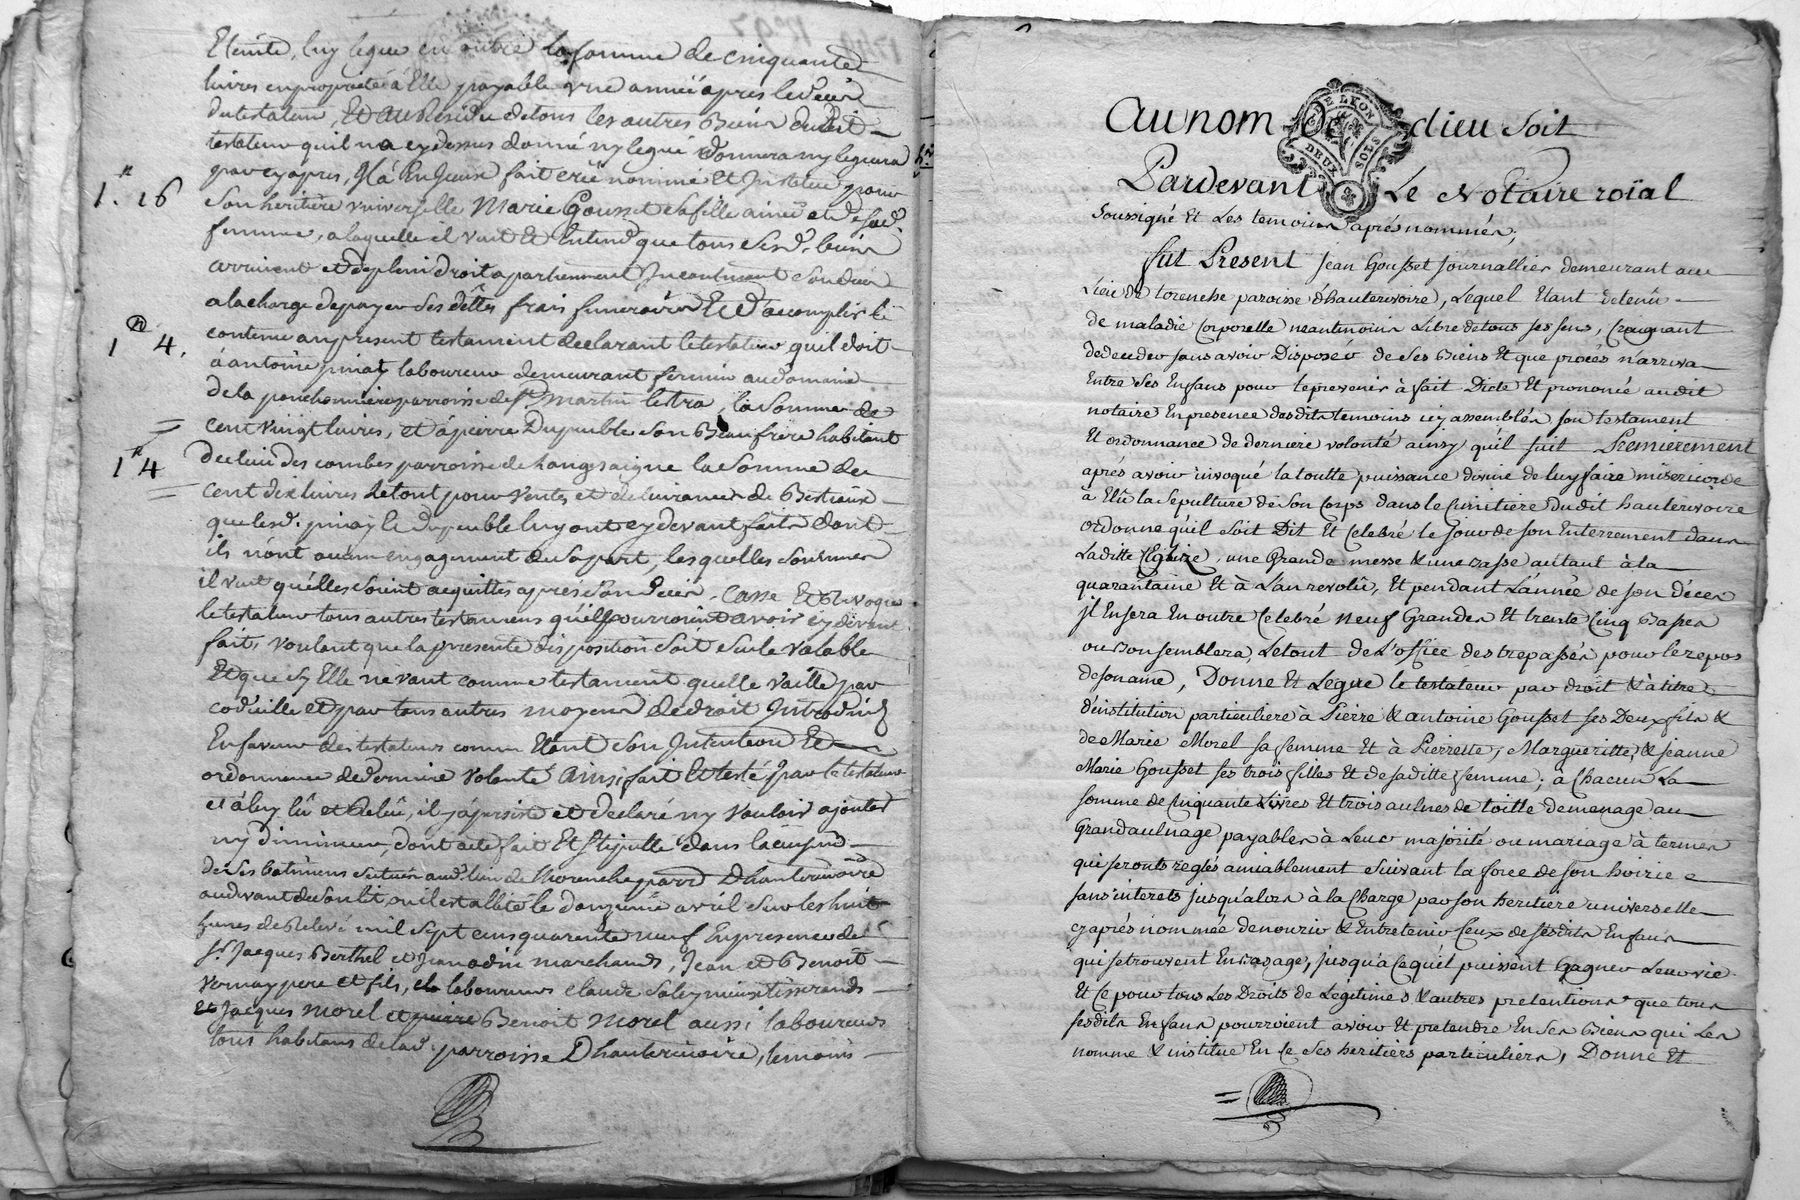 Eteinte, luy legue en outre la somme de cinquante
livres en propriété à Elle payable une année apres le deceds
du testateur, Et au Residu de tous les autres Biens dudit
testateur quil na cy dessus donné ny legué donnera ny leguera
par cy apres, Il à En Iceux fait créé nommé et Institué pour
1. 16
son heritiere universelle Marie Gousset sa fille ainée et de sad.
femme, a laquelle il veut Et Entend que tous sesd. biens
arrivent et de plein droit apartiennent Incontinent son deces
a la charge de payer ses dêttes frais funeraires Et d'acomplir le
1 4.
contenu au present testament declarant le testateur quil doit
à antoine pinay laboureur demeurant fermier au domaine
de la ponchonniere parroisse de st. martin lestra, la somme de
cent vingt livres, et à pierre Dupeuble son Beaufrere habitant
1 4
du lieu des combes parroisse de longesaigne la somme de
cent dix livres le tout pour ventes et delivrances de Bestiaux
que lesd. pinay le dupeuble luy ont cy devant faits dont
ils n'ont aucun engagement de sa part, lesquelles sommes
il veut qu'elles soient acquittés aprés son deces, Casse Et Revoque
le testateur tous autres testamens qu'il pourroient avoir cy devant
fait, voulant que la presente disposition soit seule valable
Et que sy Elle ne vaut comme testament quelle vaille par
codicille et par tous autres moyens de droit Introduits
En faveur des testateurs comme Etant son Intention Et
ordonnance de derniere volonté Ainsi fait Et testé par le testateur
et à luy lû et Relû, il y a persisté et declaré ny vouloir ajouter
ny diminuer, dont acte fait Et stipullé dans la cuisine
de ses batimens situés aud. lieu de thorenche parr. D'hauterivoire
au devant de son lit, ou il est allité le douzieme avril sur les huit
heures de Relevé mil sept cens quarente neuf En presence de
sr. Jacques Berthel et Jean marchands, Jean et Benoit
Vernay pere et fils, laboureurs claude tisserands
Et Jacques morel et pierre Benoit morel aussi laboureurs
tous habitans de lad. parroisse D'hauterivoire, temoins
Au nom de dieu soit
G. DE LYON
DEUX SOLS
Pardevant Le Notaire roïal
soussigné Et Les temoins aprés nommés;
fut Present Jean Gousset Journallier demeurant au
Lieu de torenche paroisse d'hauterivoire, Lequel Etant detenû
de maladie Corporelle neantmoins Libre de tous ses sens, Craignant
de deceder sans avoir Disposéé de ses Biens Et que procés n'arriva
Entre ses Enfans pour le prevenir à fait Dicté Et prononcé audit
notaire En presence desdits temoins icy assemblés son testament
Et ordonnance de derniere volonté ainsy qu'il suit Premierement
aprés avoir invoqué la toutte puissance divine de luy faire misericorde
à Elû la sepulture de son Corps dans le Cimitiere dudit hauterivoire
ordonne qu'il soit Dit Et Celebré le jour de son Enterrement dans
Laditte Eglize, une Grande messe & une basse autant à la
quarantaine Et à L'an revolû, Et pendant L'année de son déces
jl En sera En outre Celebré neuf Grandes Et trente Cinq Basses
ou Bon semblera, Le tout de L'office des trepassés pour le repos
de son ame, Donne Et Legue le testateur par droit & à titre
d'institution particuliere à Pierre & antoine Gousset ses Deux fils &
de Marie Morel sa femme Et à Pierrette, Margueritte, & Jeanne
Marie Gousset ses trois filles Et de saditte femme; à Chacun La
somme de Cinquante Livres Et trois aulnes de toille de menage au
Grand aulnage payables à Leur majorité ou mariage à termes
qui seronts reglés amiablement suivant la force de son hoirie
sans interets jusqu'alors à la Charge par son heritiere universelle
cy aprés nommée de nourir & Entretenir Ceux de sesdits Enfans
qui se trouvent En bas age, jusqu'a Ce qu'il puissent Gagner Leur vie
Et Ce pour tous Les Droits de Legitimes & autres pretentions que tous
sesdits Enfans pourroient avoir Et pretendre En ses Biens qui Les
nomme & institue En Ce ses heritiers particuliers, Donne Et